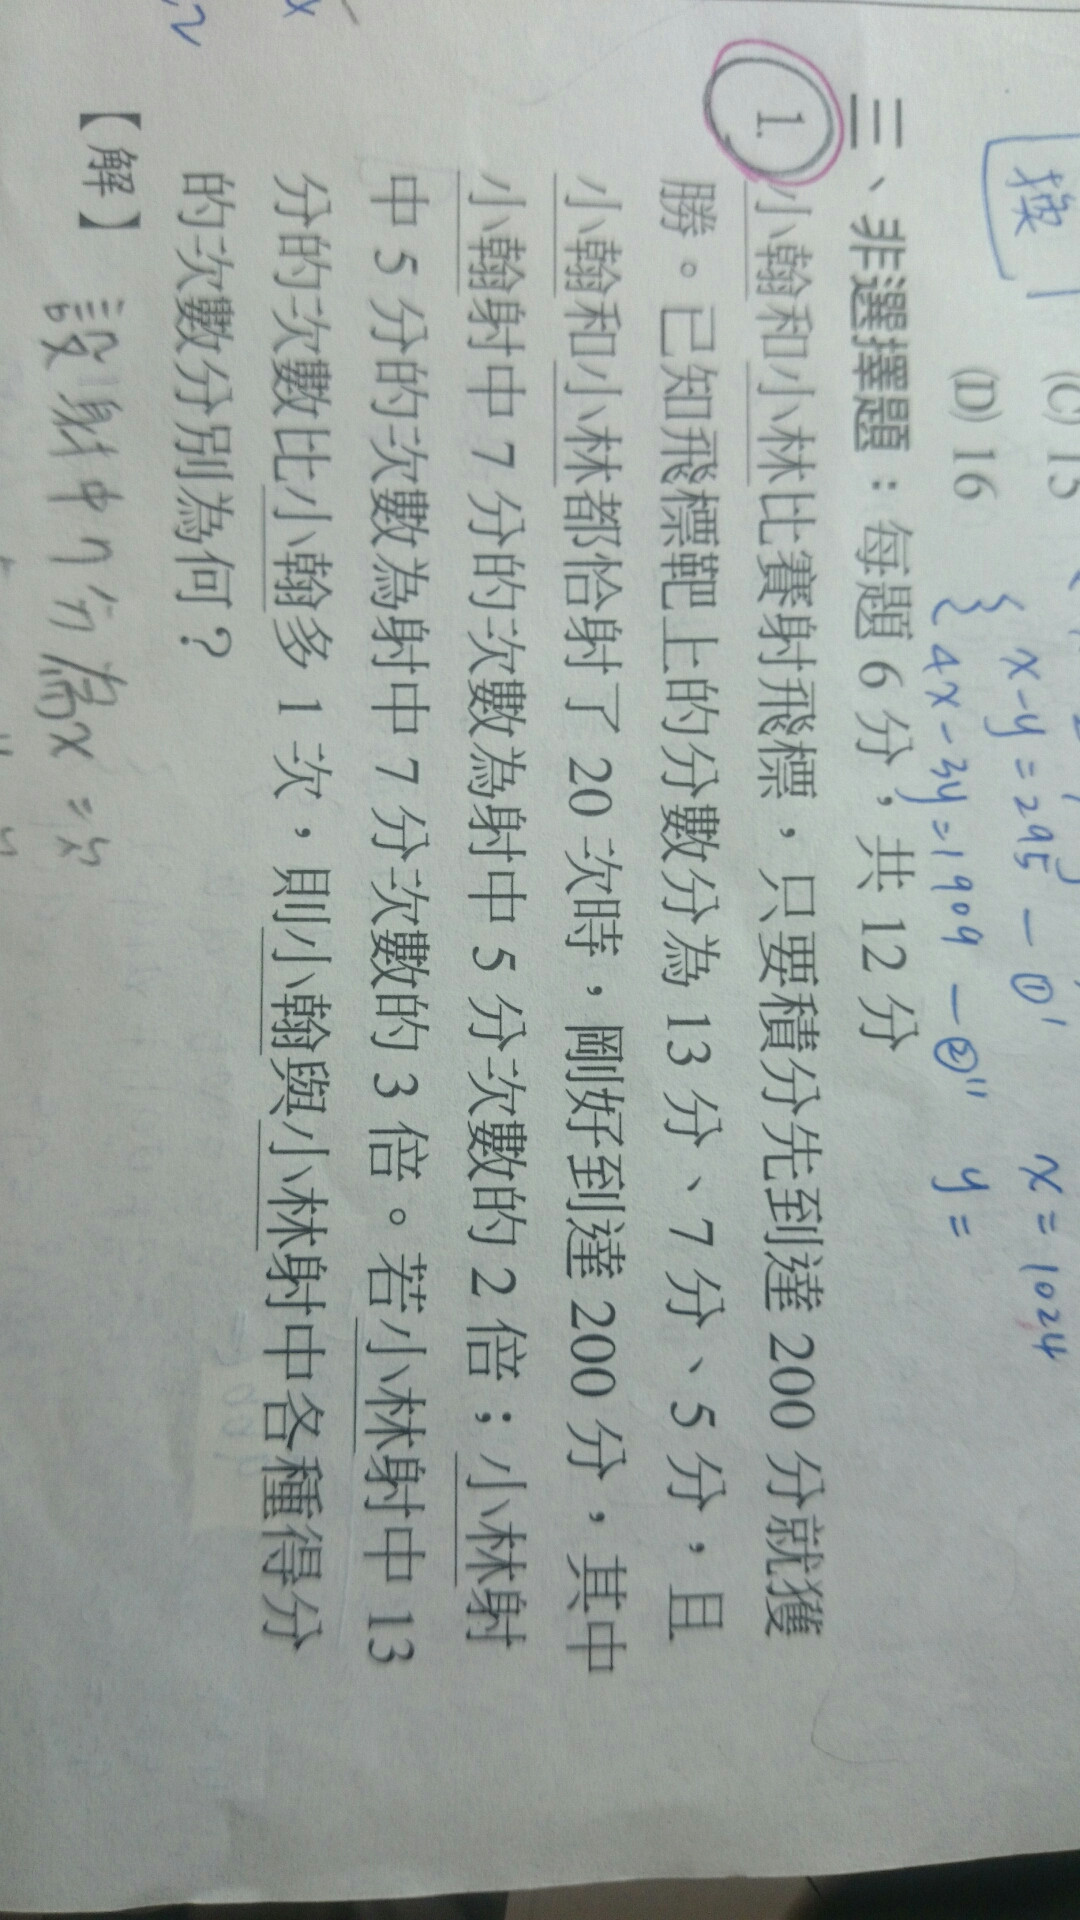 換
(C) 15
(D) 16
x-y=295 — ①'
4x-3y=1909 — ②''
x=1024
y=
三、非選擇題：每題 6 分，共 12 分
1. 小翰和小林比賽射飛標，只要積分先到達 200 分就獲
勝。已知飛標靶上的分數分為 13 分、7 分、5 分，且
小翰和小林都恰射了 20 次時，剛好到達 200 分，其中
小翰射中 7 分的次數為射中 5 分次數的 2 倍；小林射
中 5 分的次數為射中 7 分次數的 3 倍。若小林射中 13
分的次數比小翰多 1 次，則小翰與小林射中各種得分
的次數分別為何？
【解】 設射中7分為x次